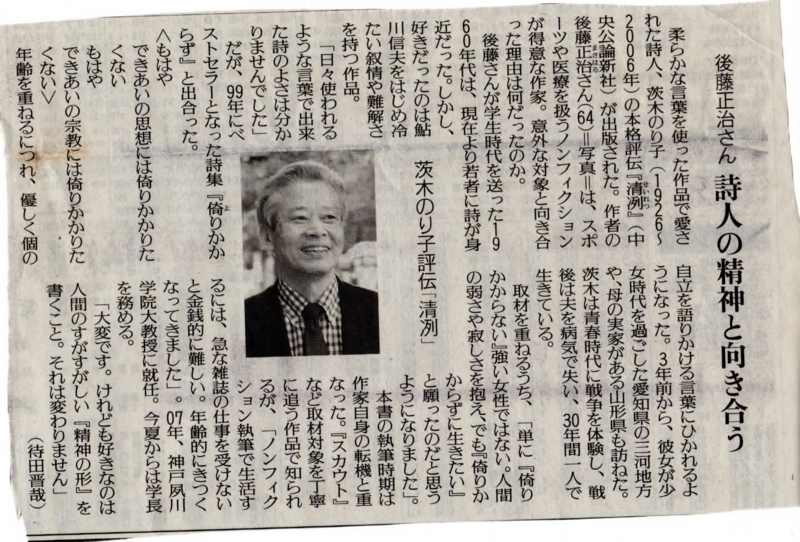 後藤正治さん 詩人の精神と向き合う
柔らかな言葉を使った作品で愛さ
れた詩人、茨木のり子（1926～
2006年）の本格評伝『清冽』（中
せいれつ
央公論新社）が出版された。作者の
後藤正治さん(64)＝写真＝は、スポ
まさはる
ーツや医療を扱うノンフィクション
が得意な作家。意外な対象と向き合
った理由は何だったのか。
後藤さんが学生時代を送った19
60年代は、現在より若者に詩が身
近だった。しかし、
好きだったのは鮎
川信夫をはじめ冷
たい叙情や難解さ
を持つ作品。
「日々使われる
ような言葉で出来
た詩のよさは分か
りませんでした」
だが、99年にベ
ストセラーとなった詩集『倚りかか
よ
らず』と出合った。
〈もはや
できあいの思想には倚りかかりた
くない
もはや
できあいの宗教には倚りかかりた
くない〉
年齢を重ねるにつれ、優しく個の
茨木のり子評伝「清冽」
自立を語りかける言葉にひかれるよ
うになった。3年前から、彼女が少
女時代を過ごした愛知県の三河地方
や、母の実家がある山形県も訪ねた。
茨木は青春時代に戦争を体験し、戦
後は夫を病気で失い、30年間一人で
生きている。
取材を重ねるうち、「単に『倚り
かからない』強い女性ではない。人間
の弱さや寂しさを抱え、でも『倚りか
からずに生きたい』
と願ったのだと思う
ようになりました」。
本書の執筆時期は
作家自身の転機と重
なった。『スカウト』
など取材対象を丁寧
に追う作品で知られ
るが、「ノンフィク
ション執筆で生活す
るには、急な雑誌の仕事を受けない
と金銭的に難しい。年齢的にきつく
なってきました」。07年、神戸夙川
学院大教授に就任。今夏からは学長
を務める。
「大変です。けれども好きなのは
人間のすがすがしい『精神の形』を
書くこと。それは変わりません」
（待田晋哉）